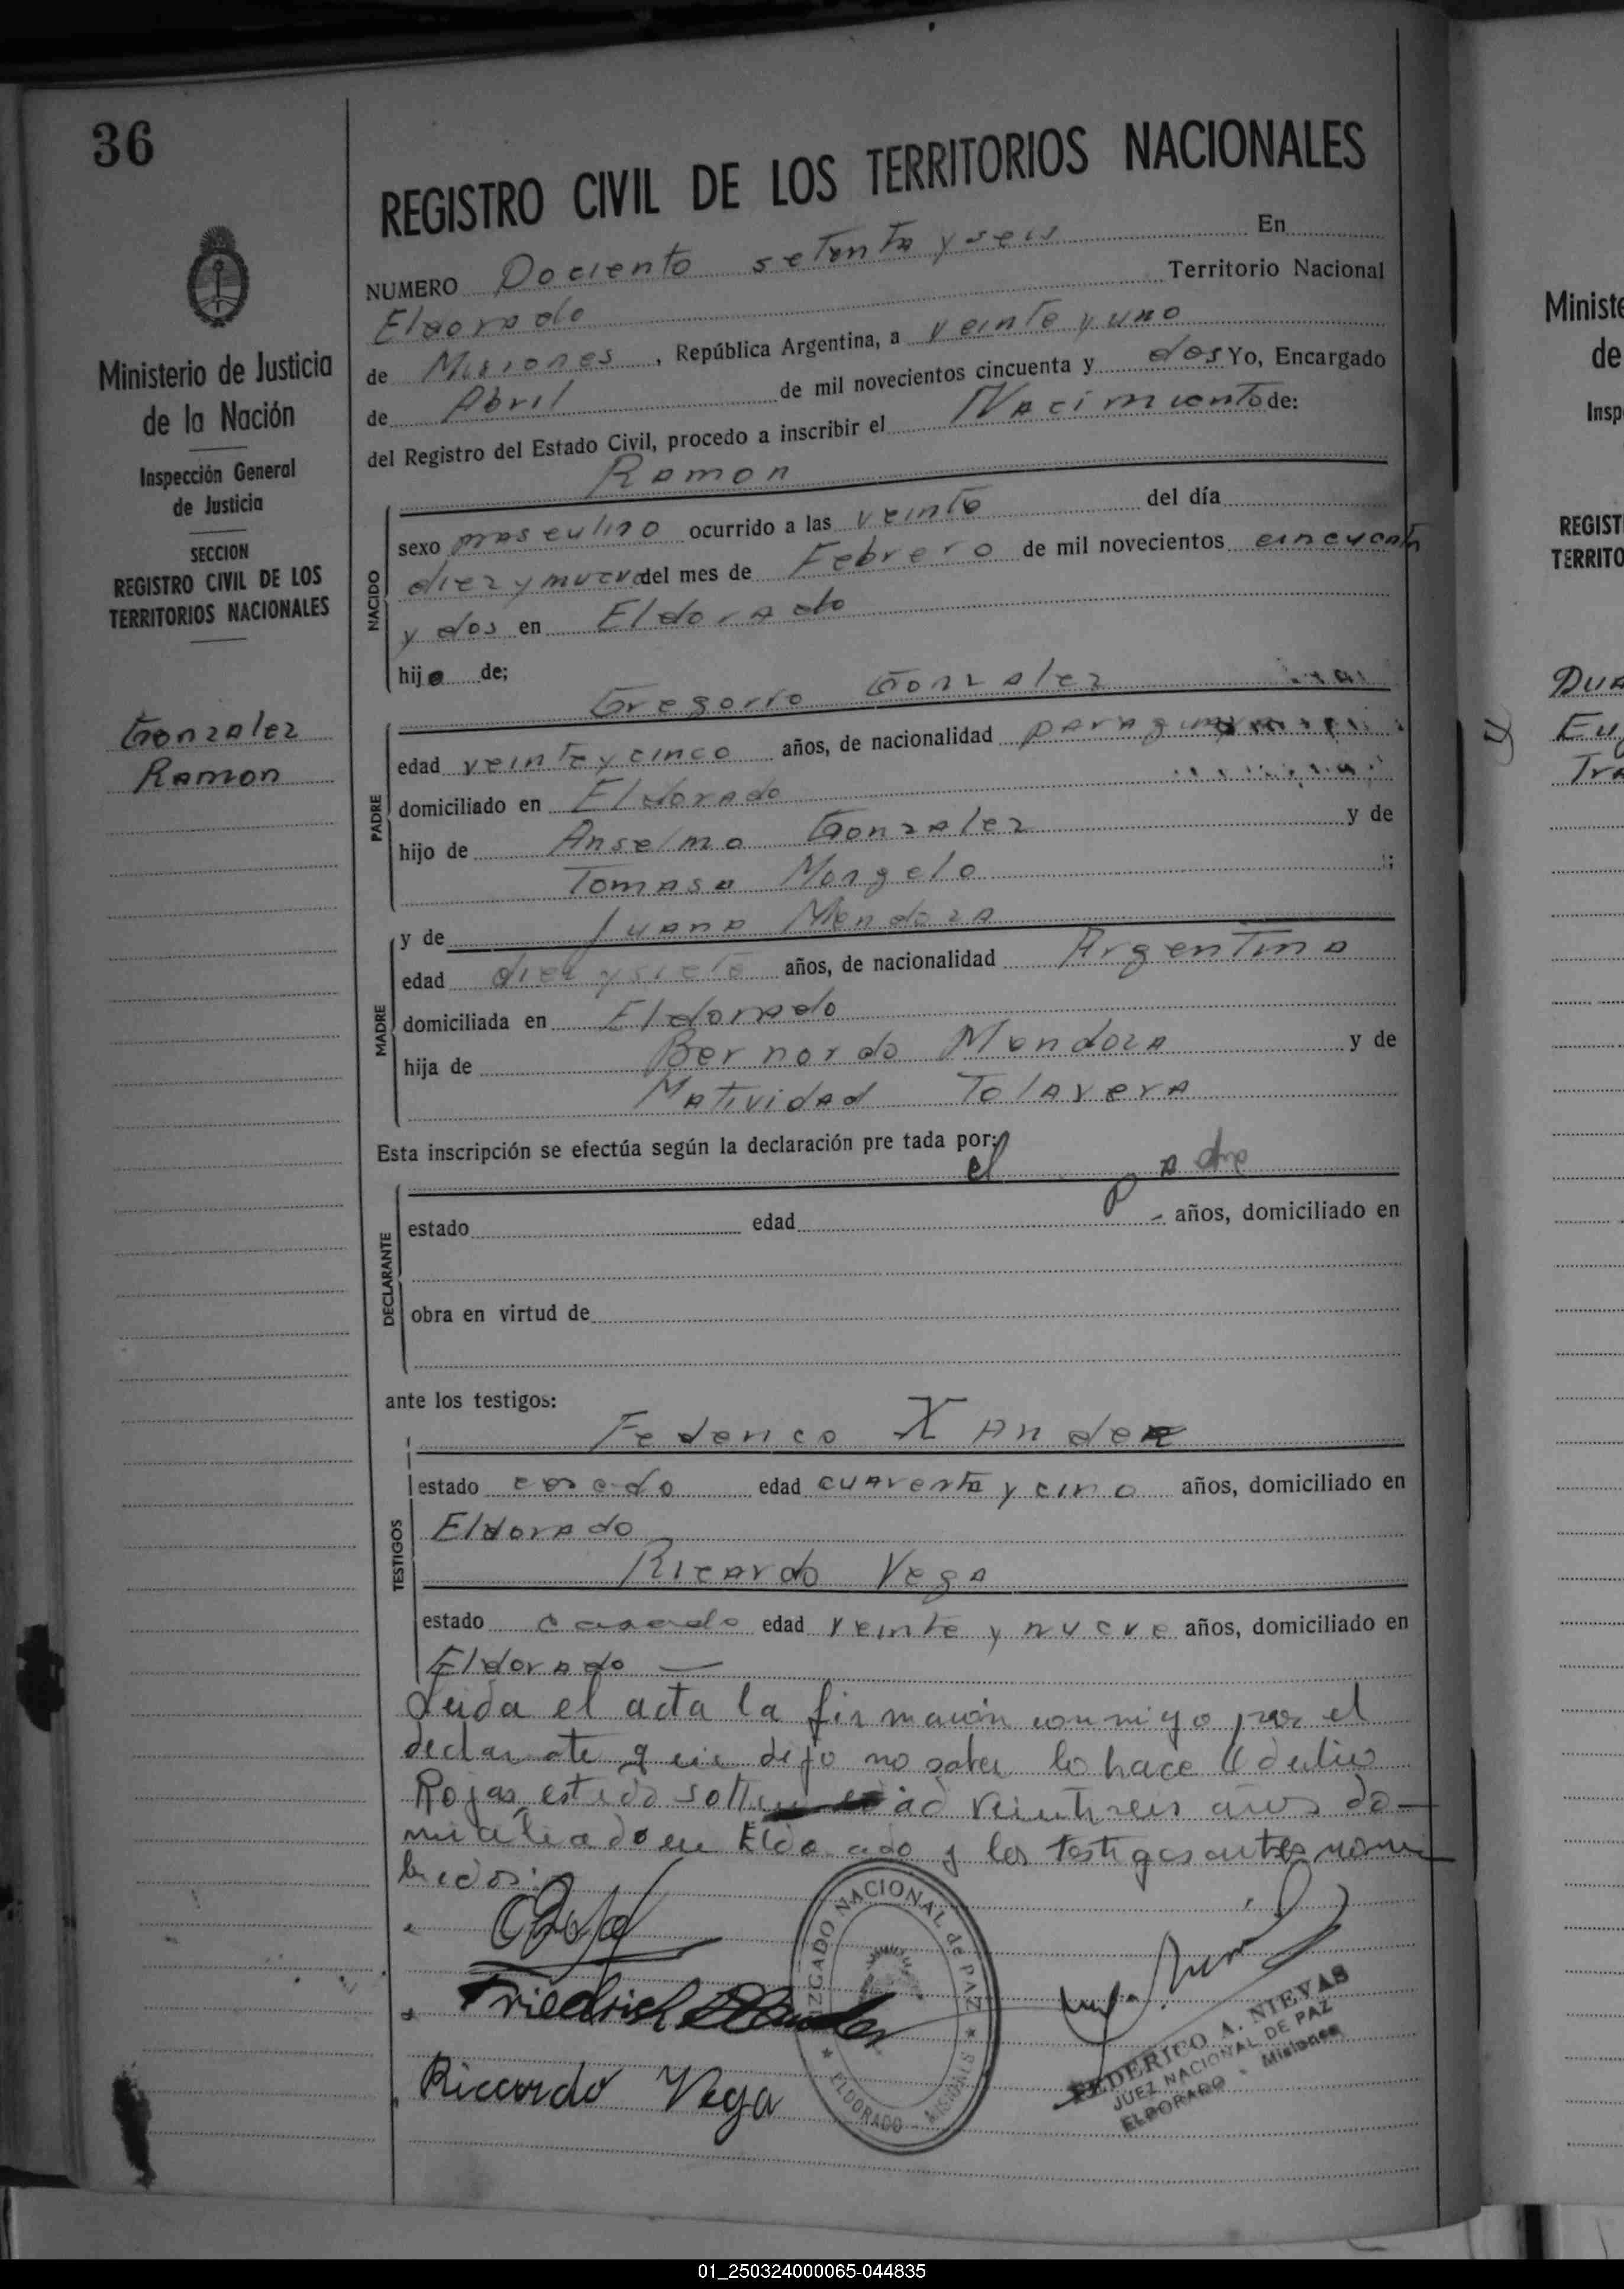 36
Ministerio de Justicia
de la Nación
Inspección General
de Justicia
SECCION
REGISTRO CIVIL DE LOS
TERRITORIOS NACIONALES
Gonzalez
Ramon
REGISTRO CIVIL DE LOS TERRITORIOS NACIONALES
NUMERO Dociento setenta y seis En
Eldorado Territorio Nacional
de Misiones, República Argentina, a veinte y uno
de Abril de mil novecientos cincuenta y dos Yo, Encargado
del Registro del Estado Civil, procedo a inscribir el Nacimiento de:
Ramon
NACIDO
sexo masculino ocurrido a las veinte del día
diez y nueve del mes de Febrero de mil novecientos cincuenta
y dos en Eldorado
hijo de;
Gregorio Gonzalez
PADRE
edad veinte y cinco años, de nacionalidad paraguaya
domiciliado en Eldorado
hijo de Anselmo Gonzalez y de
Tomasa Mongelo
MADRE
y de Juana Mendoza
edad diez y siete años, de nacionalidad Argentina
domiciliada en Eldorado
hija de Bernardo Mendoza y de
Natividad Talavera
Esta inscripción se efectúa según la declaración pre tada por:
el padre
DECLARANTE
estado edad años, domiciliado en
obra en virtud de
ante los testigos:
TESTIGOS
Federico Xander
estado casado edad cuarenta y cinco años, domiciliado en
Eldorado
Ricardo Vega
estado casado edad veinte y nueve años, domiciliado en
Eldorado
Leida el acta la firmarón conmigo por el
declarante quien dijo no saber lo hace
Rojas estado soltero edad veintiseis años do-
miciliado en Eldorado y los testigos antes nom-
brados:
Friedrich Xander
Riccardo Vega
JUZGADO NACIONAL de PAZ
ELDORADO - MISIONES
FEDERICO A. NIEVAS
JUEZ NACIONAL DE PAZ
ELDORADO - Misiones
Ministe
de
Insp
REGIST
TERRITO
01_250324000065-044835